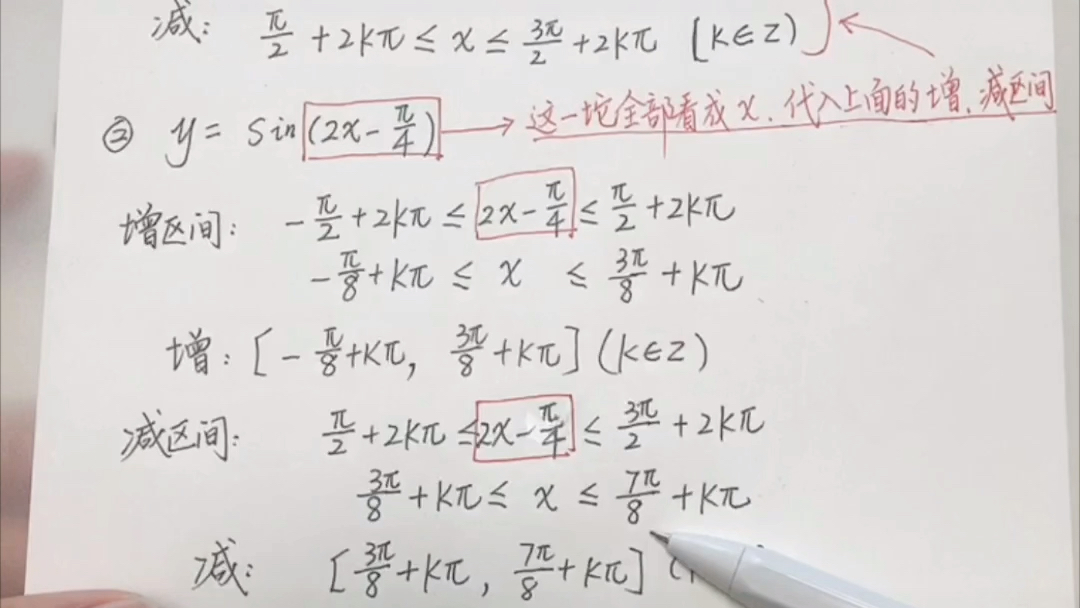 减: π/2 + 2kπ ≤ x ≤ 3π/2 + 2kπ [k∈Z)
② y = sin(2x - π/4) → 这一坨全部看成x.代入上面的增、减区间
增区间: -π/2 + 2kπ ≤ 2x - π/4 ≤ π/2 + 2kπ
-π/8 + kπ ≤ x ≤ 3π/8 + kπ
增: [-π/8 + kπ, 3π/8 + kπ] (k∈Z)
减区间: π/2 + 2kπ ≤ 2x - π/4 ≤ 3π/2 + 2kπ
3π/8 + kπ ≤ x ≤ 7π/8 + kπ
减: [3π/8 + kπ, 7π/8 + kπ] (